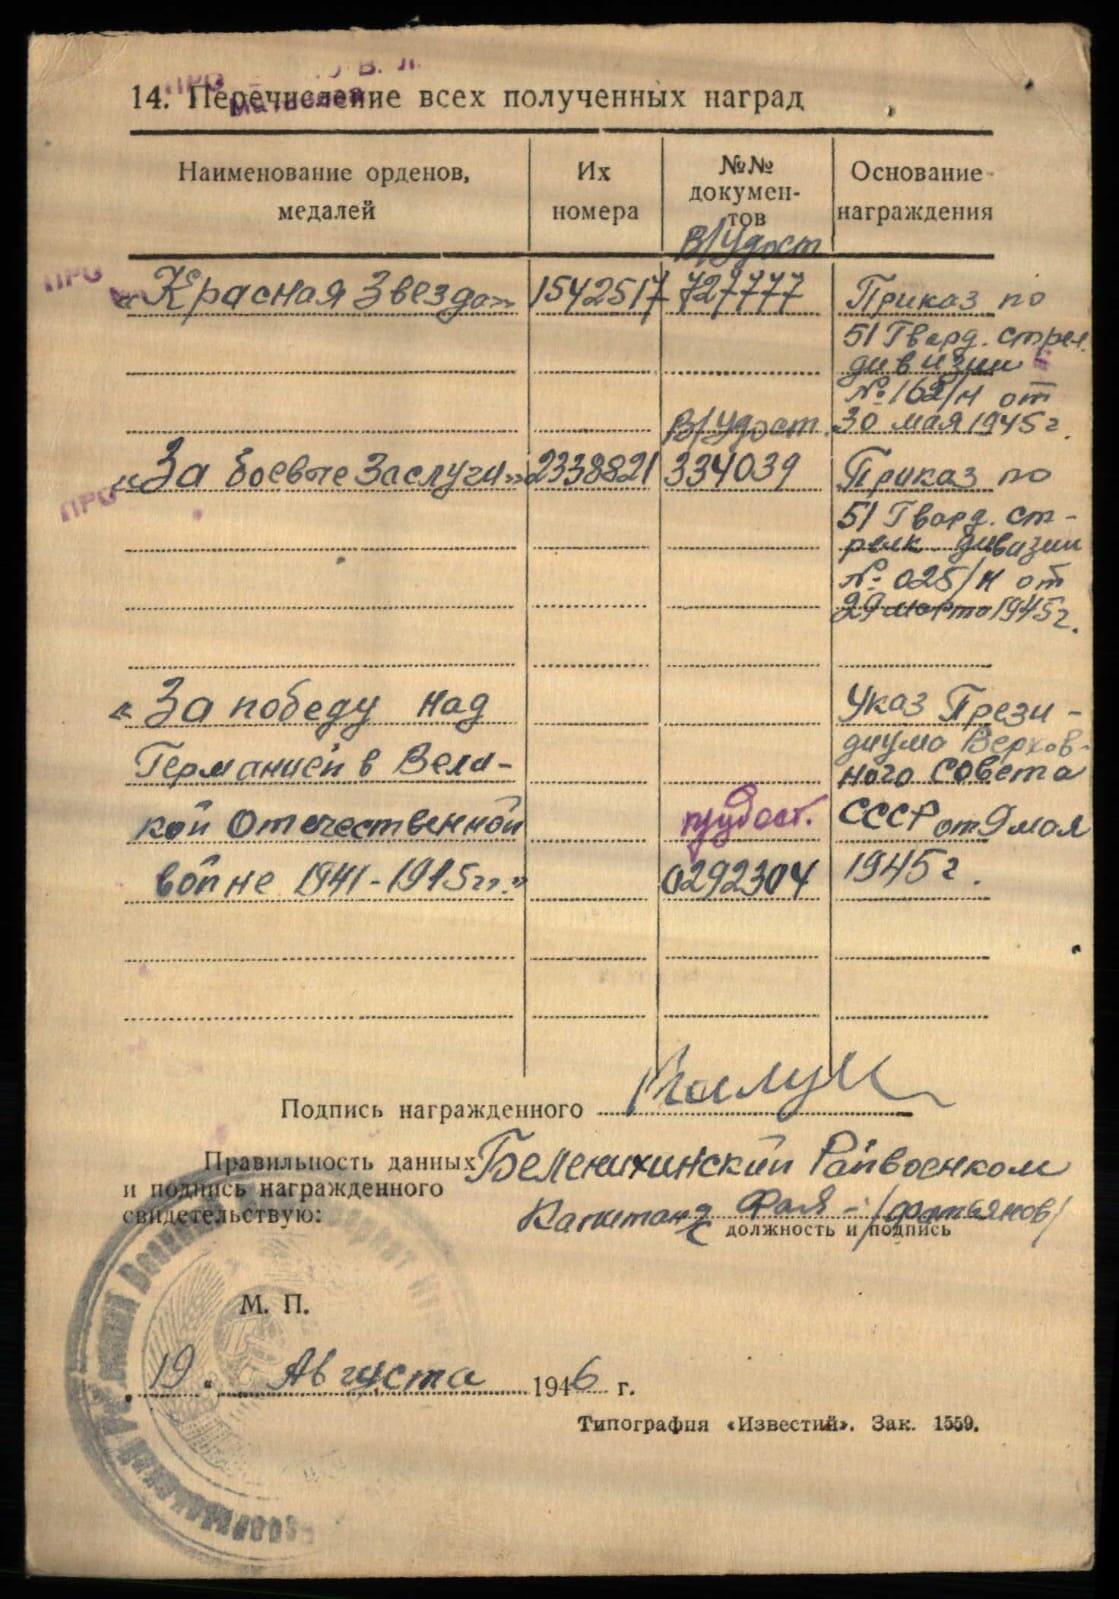 14. Перечисление всех полученных наград
Наименование орденов, медалей
Их номера
№№ докумен-тов
Основание награждения
В/Удост
«Красная Звезда» 1542517 727777 Приказ по
51 Гвард. стрел.
дивизии
№ 162/н от
В/Удост. 30 мая 1945 г.
«За боевые Заслуги» 2338821 334039 Приказ по
51 Гвард. ст-
релк. дивизии
№ 025/н от
29 марта 1945 г.
«За победу над Указ Прези-
диума Верхов-
Германией в Вели- ного Совета
кой Отечественной удост. СССР от 9 мая
войне 1941-1945 гг.» 0292304 1945 г.
Подпись награжденного
Правильность данных Беленихинский Райвоенком
и подпись награжденного
свидетельствую: Капитан
должность и подпись
М. П.
„19“ Августа 1946 г.
Типография «Известий». Зак. 1559.